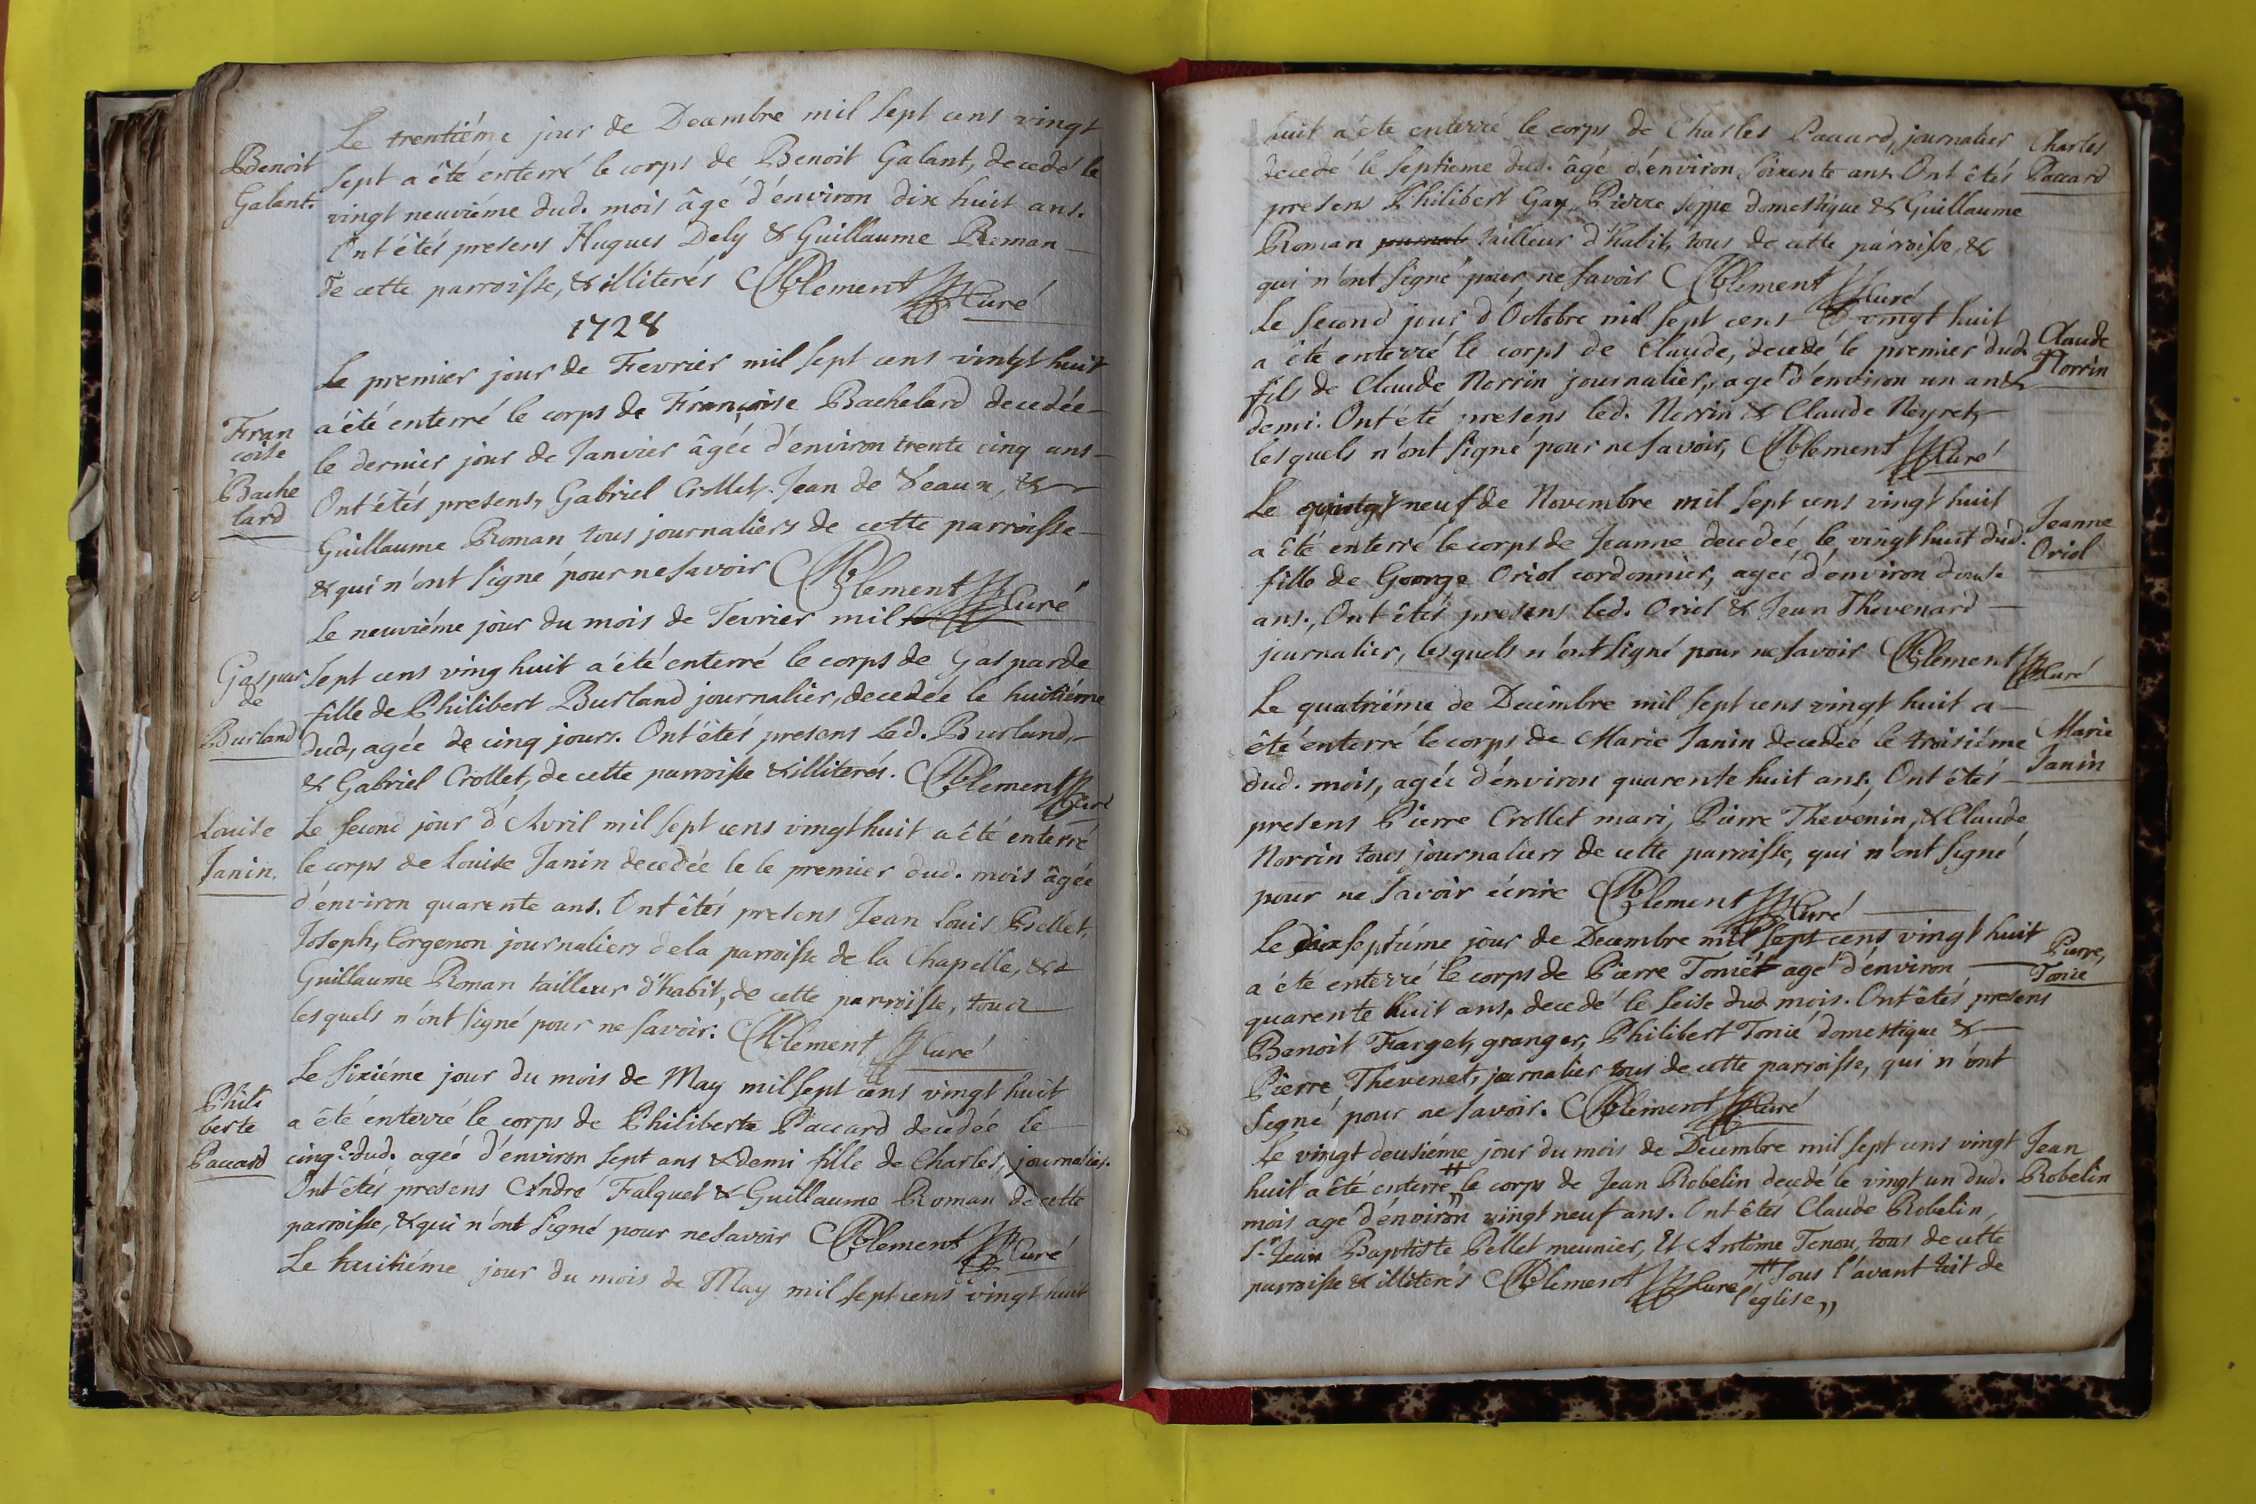 Le trentiéme jour de Decembre mil sept cens vingt
Benoit
sept a êté enterré le corps de Benoit Galant, decedé le
Galant.
vingt neuviéme dud. mois âgé d'environ dix huit ans.
Ont êtés presens Hugues Dely & Guillaume Roman
de cette parroisse, & illiterés Clement Curé
1728
Le premier jour de Fevrier mil sept cens vingt huit
a êté enterré le corps de Françoise Bachelard decedée
Fran
coise
le dernier jour de Janvier âgée d'environ trente cinq ans
Bache
lard
Ont êtés presens, Gabriel Crollet, Jean de Veaux, &
Guillaume Roman tous journaliers de cette parroisse
& qui n'ont signé pour ne savoir Clement Curé
Le neuviéme jour du mois de Fevrier mil
Gaspar
de
Burland
sept cens ving huit a êté enterré le corps de Gasparde
fille de Philibert Burland journalier, decedée le huitiéme
dud, agée de cinq jours. Ont êtés presens Led. Burland,
& Gabriel Crollet, de cette parroisse & illiterés. Clement Curé
Louise
Janin.
Le second jour d'Avril mil sept cens vingt huit a êté enterré
le corps de Louise Janin decedée le le premier dud. mois âgée
d'environ quarente ans. Ont êtés presens Jean Louis Pellet,
Joseph, Corgenon journaliers de la parroisse de la Chapelle, &
Guillaume Roman tailleur d'habit, de cette parroisse, tous
lesquels n'ont signé pour ne savoir. Clement Curé
Le siziéme jour du mois de May mil sept cens vingt huit
Phili
berte
Paccard
a êté enterré le corps de Philiberte Paccard decedée le
cinqe. dud. agée d'environ sept ans & demi fille de Charles, journalier.
Ont êtés presens André Falquet & Guillaume Roman de cette
parroisse, & qui n'ont signé pour ne savoir Clement Curé
Le huitiéme jour du mois de May mil sept cens vingt huit
huit a êté enterré le corps de Charles Paccard, journalier
Charles
Paccard
decedé le septieme dud. âgé d'environ soixente ans. Ont êtés
presens Philibert Gay, Pierre Joppe domestique & Guillaume
Roman tailleur d'habit, tous de cette parroisse, &
qui n'ont signé pour ne savoir Clement Curé
Le second jour d'Octobre mil sept cens vingt huit
Claude
Norrin
a êté enterré le corps de Claude, decedé le premier dud.
fils de Claude Norrin journalier, agé d'environ un an &
demi. Ont été presens led. Norrin & Claude Neyret,
lesquels n'ont signé pour ne savoir, Clement Curé
Le vingt neuf de Novembre mil sept cens vingt huit
Jeanne
Oriol
a êté enterré le corps de Jeanne decedée le vingt huit dud.
fille de George Oriol cordonnier, agée d'environ douse
ans., Ont êtés presens led. Oriol & Jean Thevenard
journalier, lesquels n'ont signé pour ne savoir Clement Curé
Le quatriéme de Decembre mil sept cens vingt huit a
Marie
Janin
êté enterré le corps de Marie Janin decedée le troisiéme
dud. mois, agée d'environ quarente huit ans. Ont êtés
presens Pierre Crollet mari, Pierre Thevenin, & Claude
Norrin tous journaliers de cette parroisse, qui n'ont signé
pour ne savoir écrire Clement Curé
Le dix septiéme jour de Decembre mil sept cens vingt huit
Pierre,
Tonié
a été enterré le corps de Pierre Tonié agé d'environ
quarente huit ans, decedé le seise dud. mois. Ont êtés presens
Benoit Farget, granger, Philibert Tonié domestique &
Pierre Thevenet, journalier tous de cette parroisse, qui n'ont
signé pour ne savoir. Clement Curé
Le vingt deusiéme jour du mois de Decembre mil sept cens vingt
Jean
Robelin
huit a êté enterré # le corps de Jean Robelin decedé le vingt un dud.
mois agé d'environ vingt neuf ans. Ont êtés Claude Robelin,
Sr. Jean Baptiste Pellet meunier, Et Antoine Tenou, tous de cette
parroisse & illiterés Clement Curé # sous l'avant toit de
l'eglise"